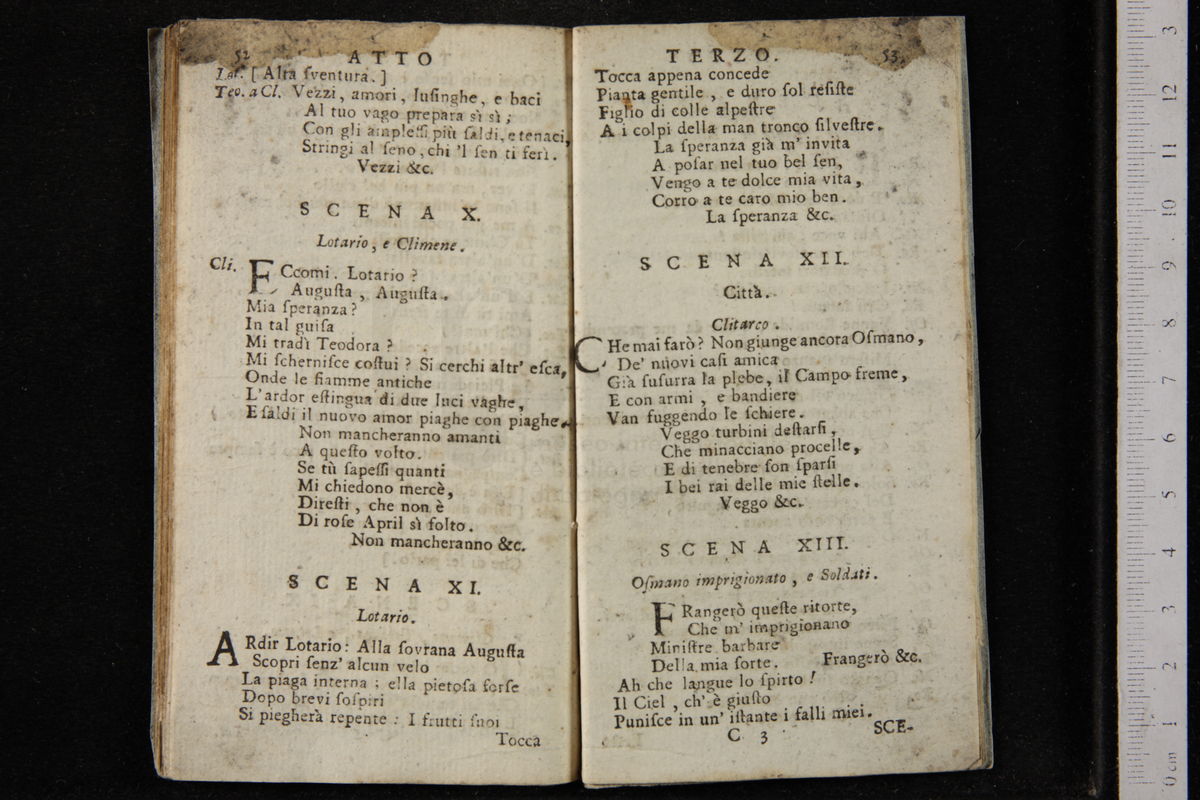 52 ATTO
Lot. [ Alta ſventura. ]
Teo. a Cl. Vezzi, amori, luſinghe, e baci
Al tuo vago prepara sì sì;
Con gli ampleſſi più ſaldi, e tenaci,
Stringi al ſeno, chi 'l ſen ti ferì.
Vezzi &c.
SCENA X.
Lotario, e Climene.
Cli. ECcomi. Lotario?
Auguſta, Auguſta.
Mia ſperanza?
In tal guiſa
Mi tradì Teodora?
Mi ſcherniſce coſtui? Si cerchi altr' eſca,
Onde le fiamme antiche
L'ardor eſtingua di due luci vaghe,
E ſaldi il nuovo amor piaghe con piaghe.
Non mancheranno amanti
A queſto volto.
Se tù ſapeſſi quanti
Mi chiedono mercè,
Direſti, che non è
Di roſe April sì folto.
Non mancheranno &c.
SCENA XI.
Lotario.
ARdir Lotario: Alla ſovrana Auguſta
Scopri ſenz' alcun velo
La piaga interna; ella pietoſa forſe
Dopo brevi ſoſpiri
Si piegherà repente: I frutti ſuoi
Tocca
TERZO. 53
Tocca appena concede
Pianta gentile, e duro ſol reſiſte
Figlio di colle alpeſtre
A i colpi della man tronco ſilveſtre.
La ſperanza già m' invita
A poſar nel tuo bel ſen,
Vengo a te dolce mia vita,
Corro a te caro mio ben.
La ſperanza &c.
SCENA XII.
Città.
Clitarco.
CHe mai farò? Non giunge ancora Oſmano,
De' nuovi caſi amica
Già ſuſurra la plebe, il Campo freme,
E con armi, e bandiere
Van fuggendo le ſchiere.
Veggo turbini deſtarſi,
Che minacciano procelle,
E di tenebre ſon ſparſi
I bei rai delle mie ſtelle.
Veggo &c.
SCENA XIII.
Oſmano imprigionato, e Soldati.
FRangerò queſte ritorte,
Che m' imprigionano
Miniſtre barbare
Della mia ſorte. Frangerò &c.
Ah che langue lo ſpirto!
Il Ciel, ch' è giuſto
Puniſce in un' iſtante i falli miei.
C 3 SCE-
0 cm 1 2 3 4 5 6 7 8 9 10 11 12 3